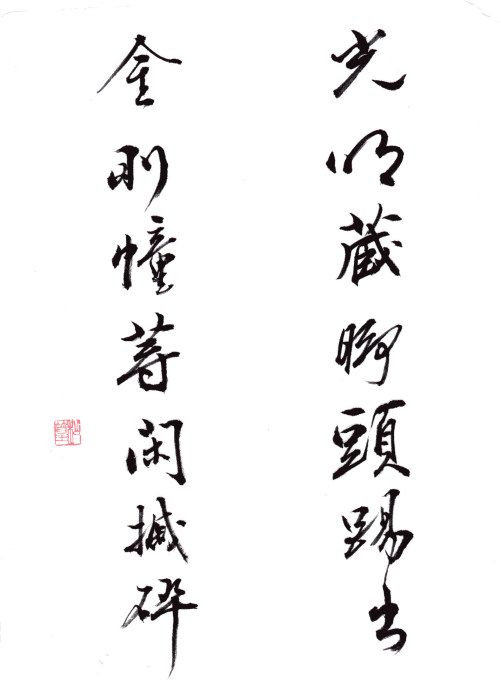 光明藏脚頭踢出
金剛幢等閑撼碎